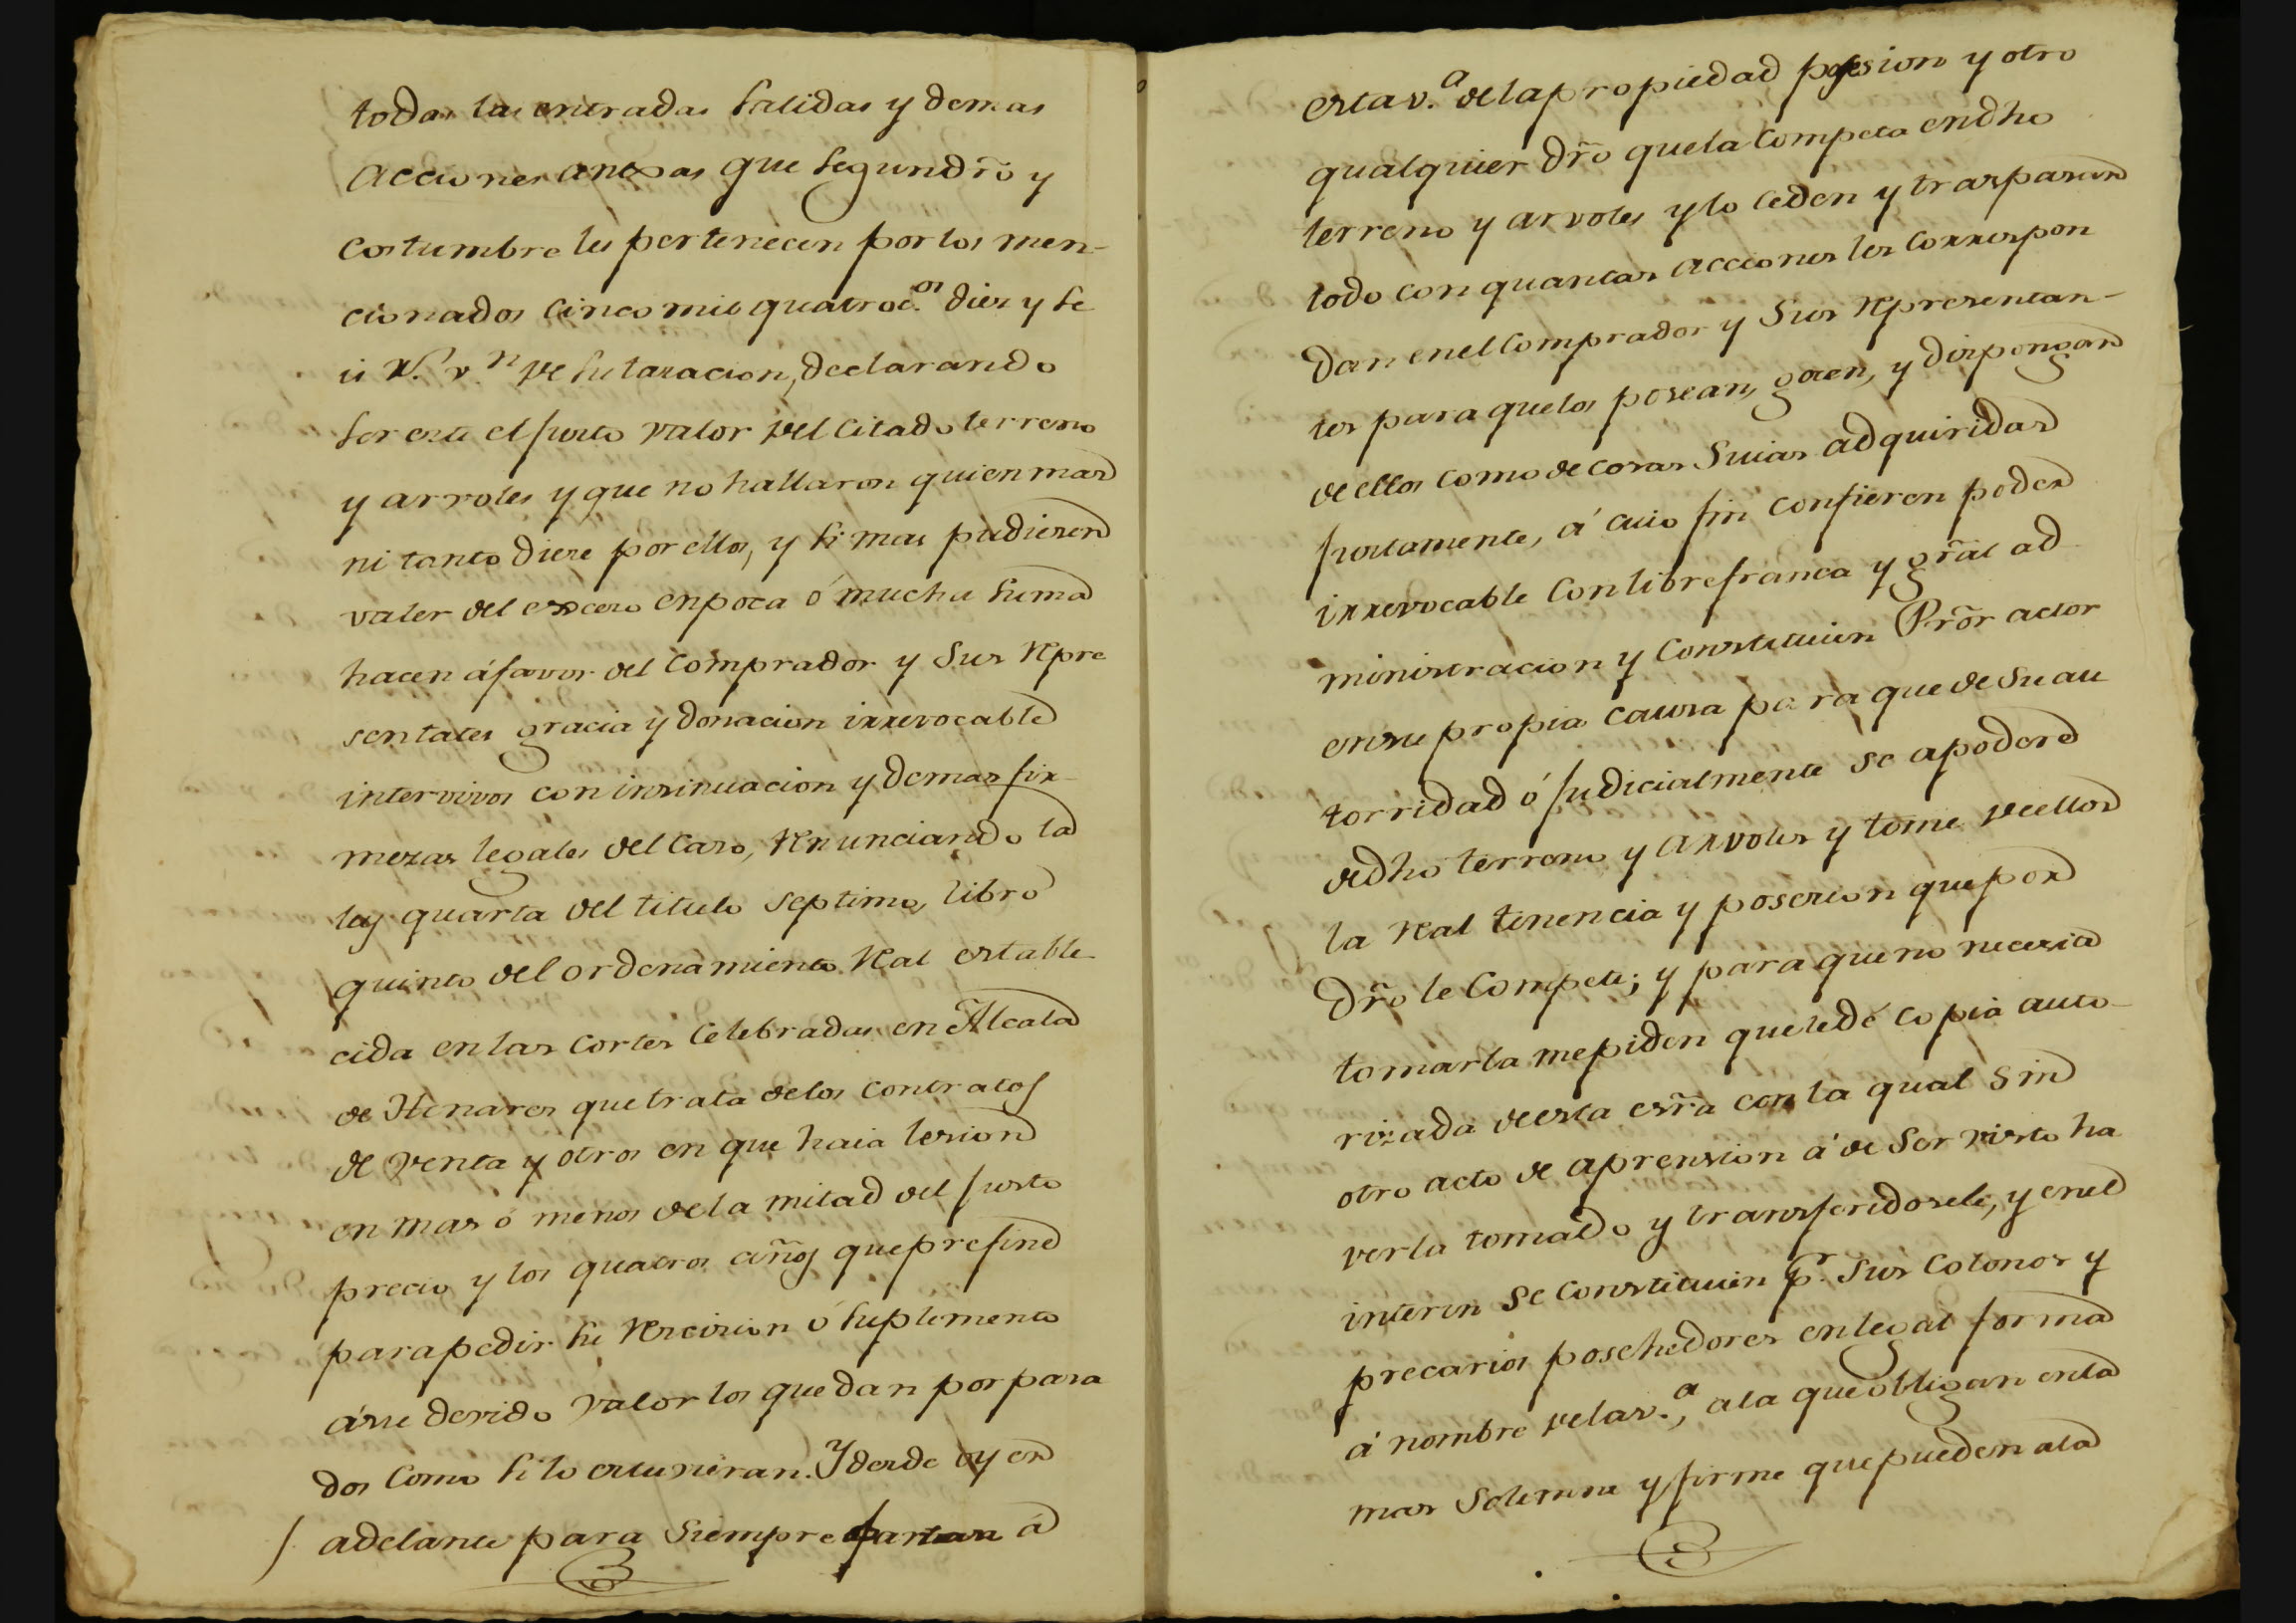 todas las entradas salidas y demas
acciones anexas que segun dr̃o y
costumbre les pertenecen por los men-
cionados cinco mil quatroc.os diez y se
is r.s v.n de su tasacion, declarando
ser este el justo valor del citado terreno
y arvoles y que no hallaron quien mas
ni tanto diese por ellos, y si mas pudieren
valer del exceso en poca ó mucha suma
hacen á favor del comprador y sus repre
sentates gracia y donacion irrevocable
intervivos con insinuacion y demas fir-
mezas legales del caso, renunciando la
ley quarta del titulo septimo, libro
quinto del ordenamiento real estable-
cida en las cortes celebradas en Alcala
de Henares que trata de los contratos
de venta y otros en que haia lesion
en mas ó menos de la mitad del justo
precio y los quatros años que prefine
para pedir su rescision ó suplemento
á su devido valor los que dan por pasa
dos como si lo estuvieran. Y desde oy en
adelante para siempre apartan á
esta v.a de la propiedad posesion y otro
qualquier dr̃o que la competa en dho
terreno y arvoles y lo ceden y traspasan
todo con quantas acciones les correspon
dan en el comprador y sus representan-
tes para que los posean, gocen, y dispongan
de ellos como de cosas suias adquiridas
justamente, á cuio fin confieren poder
irrevocable con libre franca y gr̃al ad-
ministracion y constituien Pr̃or actor
en su propia causa para que de su au
torridad ó judicialmente se apodere
de dho terreno y arvoles y tome de ellos
la real tenencia y posesion que por
dr̃o le compete; y para que no necesite
tomarla me piden que le dé copia auto-
rizada de esta esr̃a con la qual sin
otro acto de aprension á de ser visto ha
verla tomado y transferidosele, y en el
interin se constituien p.r sus colonos y
precarios posehedores en legal forma
á nombre de la v.a, a la que obligan en la
mas solemne y firme que pueden a la